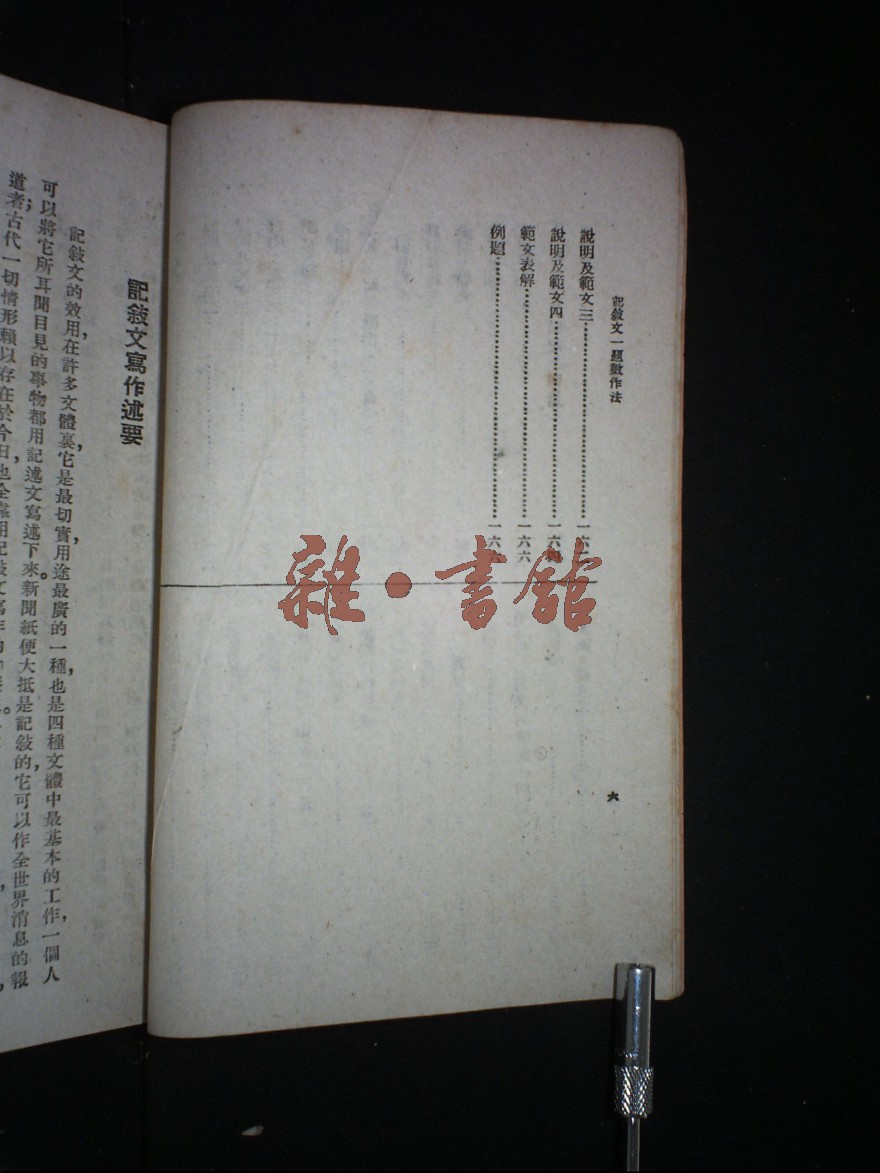 記敍文一題數作法
說明及範文三……一六
說明及範文四……一六
範文表解……一六六
例題……一六
六
雜·書館
記敍文寫作述要
記敍文的效用，在許多文體裏，它是最切實用途最廣的一種，也是四種文體中最基本的工作，一個人
可以將它所耳聞目見的事物都用記述文寫述下來。新聞紙便大抵是記敍的，它可以作全世界消息的報
道者；古代一切情形賴以存在於今日，也全靠用記敍文寫作的